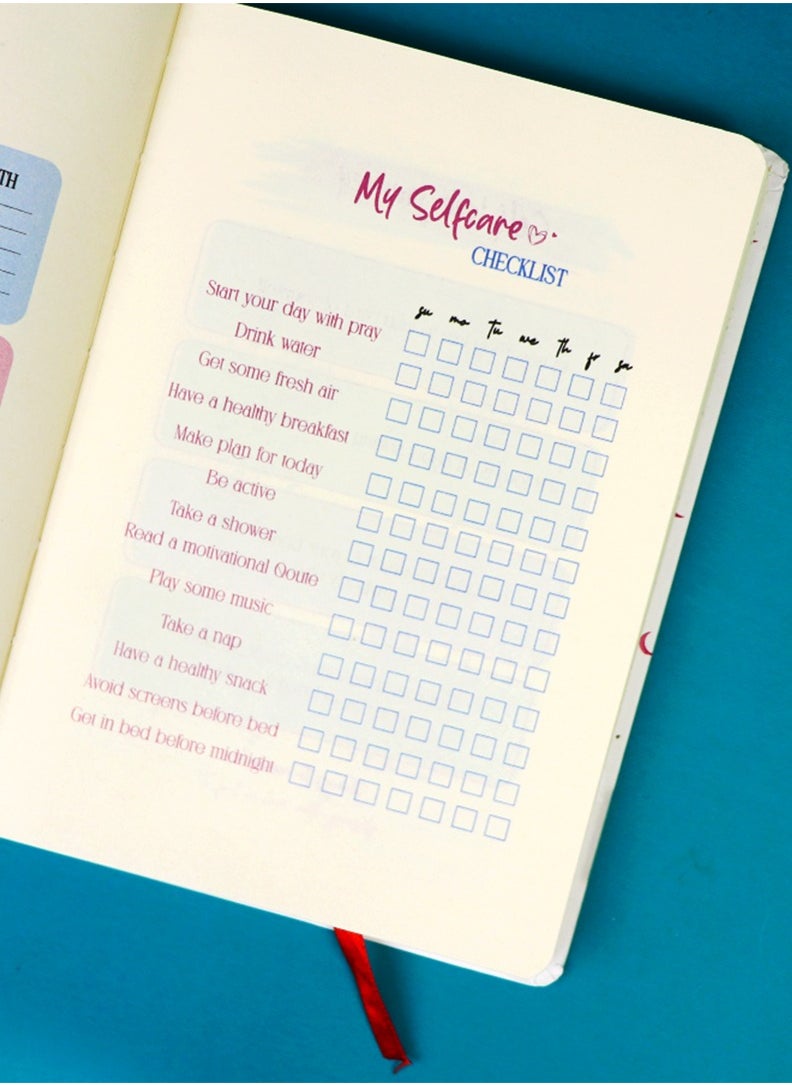 TH
My Selfcare
CHECKLIST
su mo tu we th fr sa
Start your day with pray
Drink water
Get some fresh air
Have a healthy breakfast
Make plan for today
Be active
Take a shower
Read a motivational Qoute
Play some music
Take a nap
Have a healthy snack
Avoid screens before bed
Get in bed before midnight